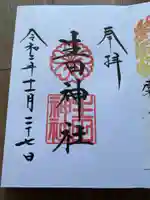 奉拝
生田神社
生田神社
令和二年十一月二十七日